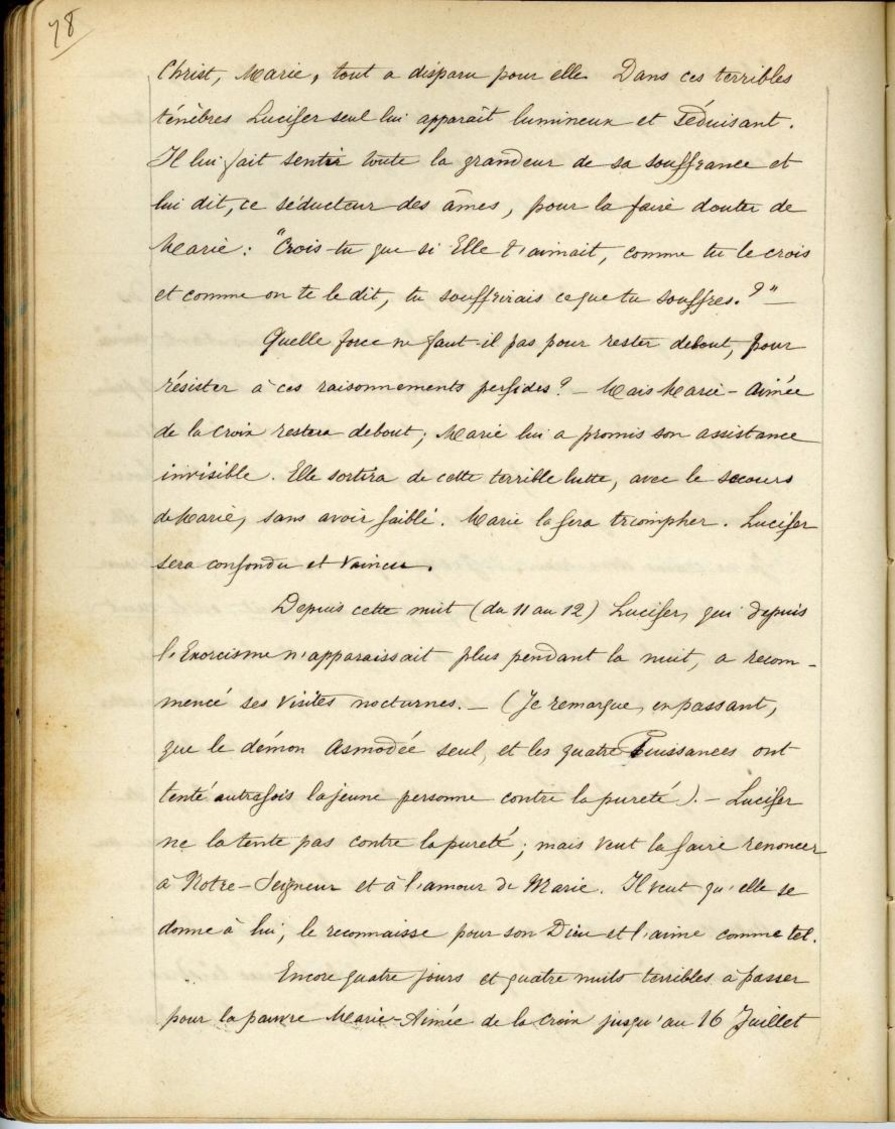 78
Christ, Marie, tout a disparu pour elle. Dans ces terribles
ténèbres Lucifer seul lui apparaît lumineux et séduisant.
Il lui fait sentir toute la grandeur de sa souffrance et
lui dit, ce séducteur des âmes, pour la faire douter de
Marie : "Crois-tu que si Elle t'aimait, comme tu le crois
et comme on te le dit, tu souffrirais ce que tu souffres.?" —
Quelle force ne faut-il pas pour rester debout, pour
résister à ces raisonnements perfides ? — Mais Marie-Aimée
de la Croix restera debout ; Marie lui a promis son assistance
invisible. Elle sortira de cette terrible lutte, avec le secours
de Marie, sans avoir faibli. Marie la fera triompher. Lucifer
sera confondu et vaincu.
Depuis cette nuit (du 11 au 12) Lucifer, qui depuis
l'Exorcisme n'apparaissait plus pendant la nuit, a recom-
mencé ses visites nocturnes. — (Je remarque, en passant,
que le démon Asmodée seul, et les quatre Puissances ont
tenté autrefois la jeune personne contre la pureté). — Lucifer
ne la tente pas contre la pureté ; mais veut la faire renoncer
à Notre-Seigneur et à l'amour de Marie. Il veut qu'elle se
donne à lui, le reconnaisse pour son Dieu et l'aime comme tel.
Encore quatre jours et quatre nuits terribles à passer
pour la pauvre Marie-Aimée de la Croix jusqu'au 16 Juillet